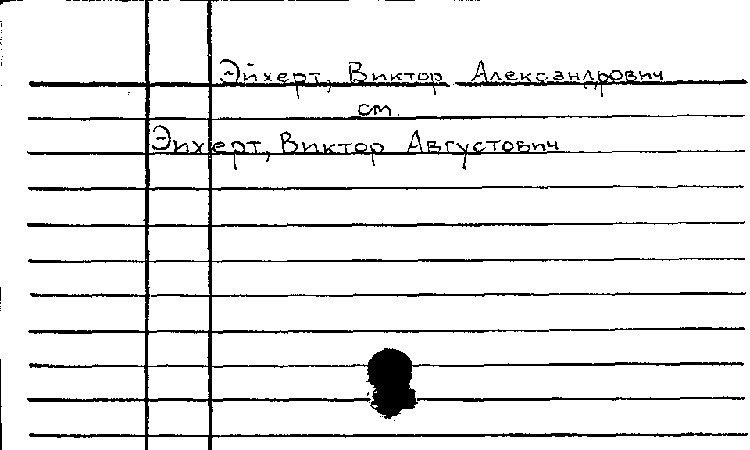 Эйхерт, Виктор Александрович
см.
Эихерт, Виктор Августович